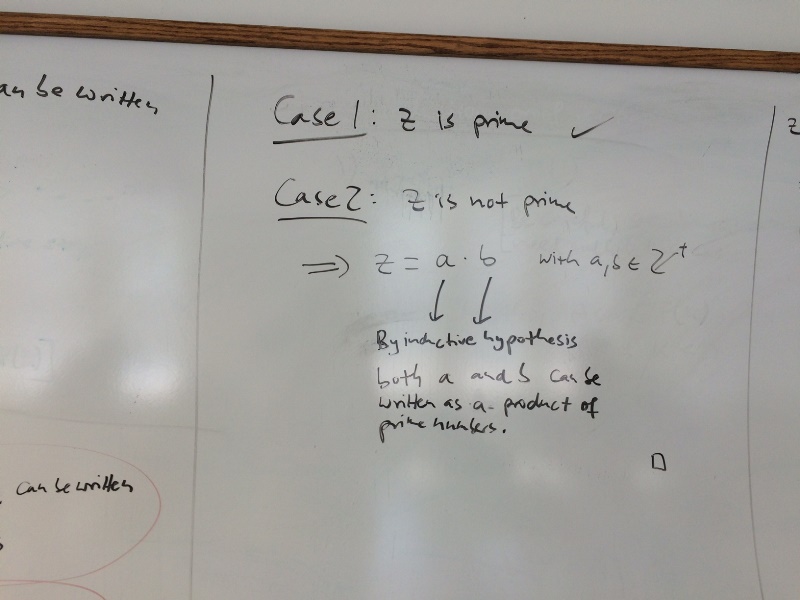 an be written
Case 1: z is prime ✓
Case 2: z is not prime
⟹ z = a · b with a, b ∈ ℤ⁺
↓ ↓
By inductive hypothesis
both a and b can be
written as a product of
prime numbers.
□
can be written
z